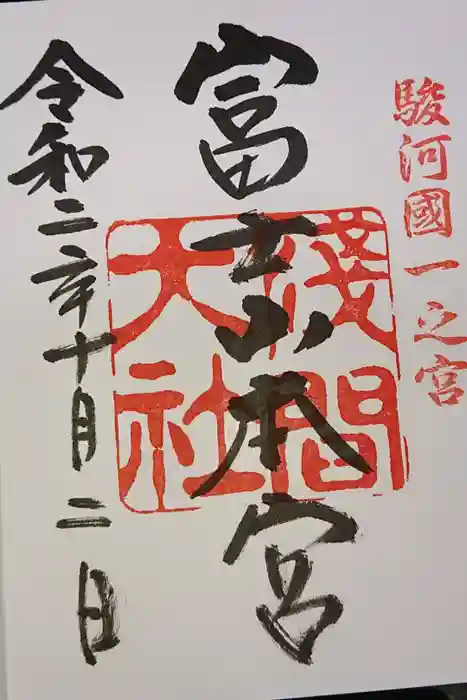 駿河國一之宮
富士山本宮
淺間大社
令和二年十月二日